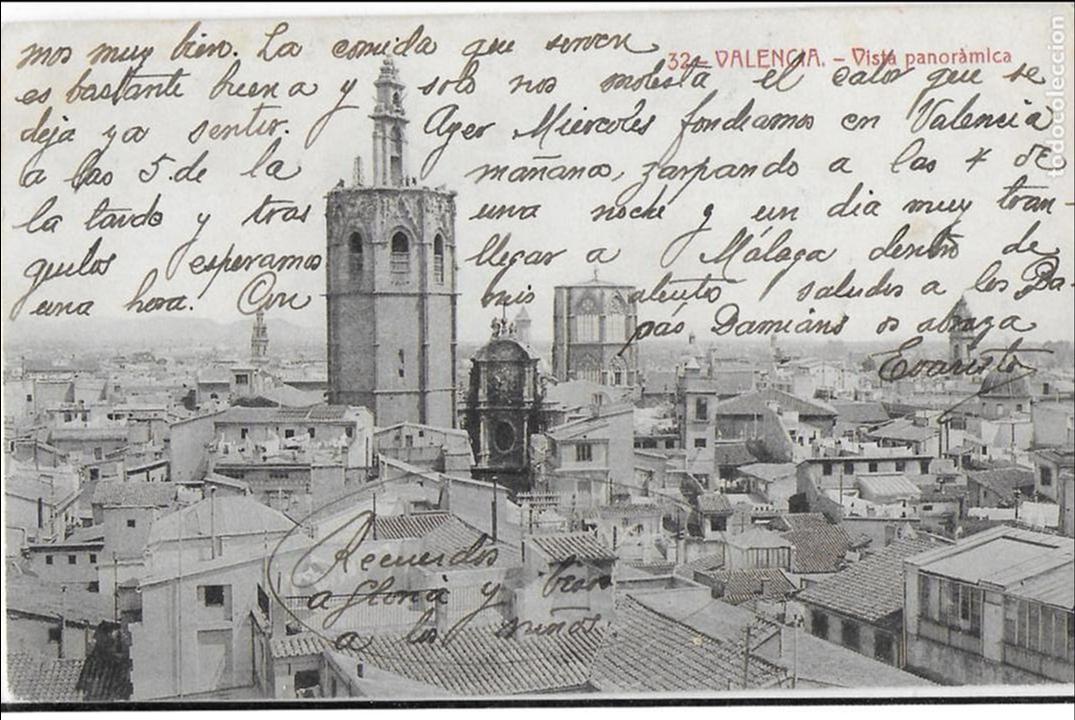 mos muy bien. La comida que serven
32.- VALENCIA. - Vista panoràmica
es bastante buena y solo nos molesta el calor que se
deja ya sentir. Ayer Miercoles fondeamos en Valencia
a las 5. de la mañana, zarpando a las 4 de
la tarde y tras una noche y un dia muy tran-
quilos esperamos llegar a Málaga dentro de
una hora. Con mis saludos a los Pa-
pás Damiáns os abraza
Evaristo
Recuerdos
a Gloria y
a los niños.
todocoleccion